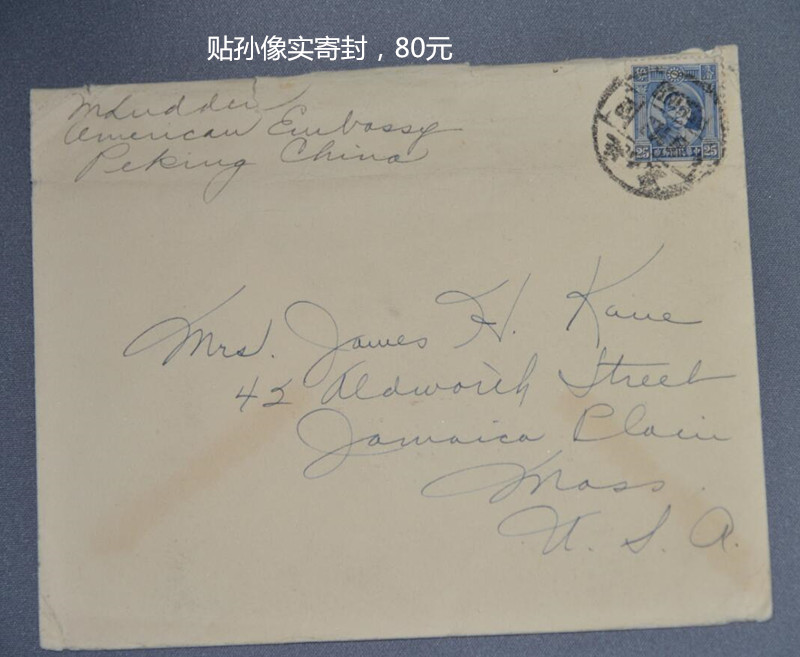 贴孙像实寄封，80元
American Embassy
Peking China
25 25
Mrs. James H. Kane
42 Aldworth Street
Jamaica Plain
Mass.
U. S. A.